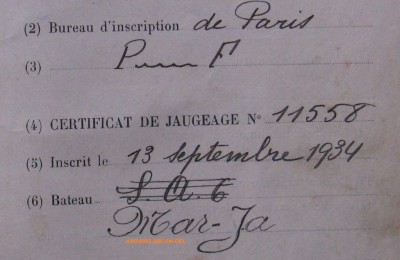 (2) Bureau d'inscription de Paris
(3) P F
(4) CERTIFICAT DE JAUGEAGE N° 11558
(5) Inscrit le 13 septembre 1934
(6) Bateau S.A.6
Mar-Ja